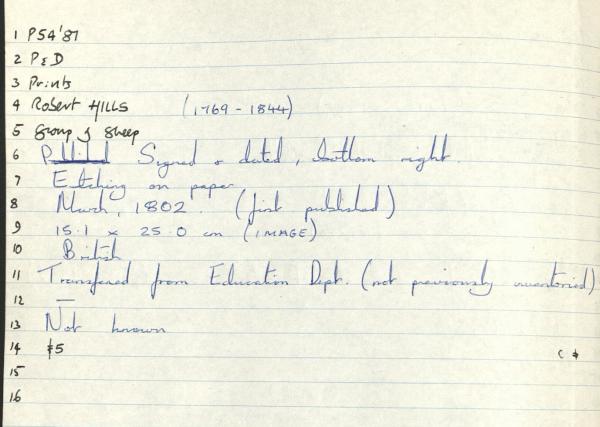 1 P54'87
2 P&D
3 Prints
4 Robert HILLS (1769-1844)
5 Group of Sheep
6 Signed & dated, bottom right.
7 Etching on paper
8 March, 1802. (first published)
9 15.1 x 25.0 cm (IMAGE)
10 British
11 Transfered from Education Dept. (not previously inventoried)
12 —
13 Not known
14 $5
15
16